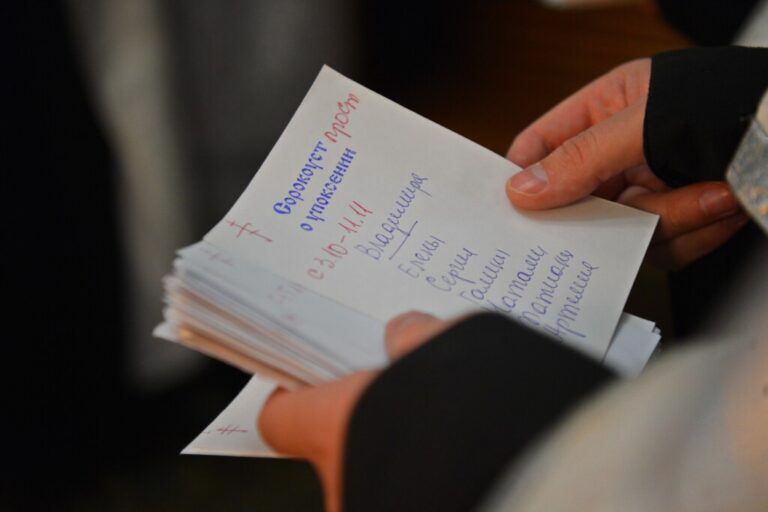 Сорокоуст прост
о упокоении
с 3.10-11.11
Владимира
Елены
Сергия
Галины
Наталии
Татианы